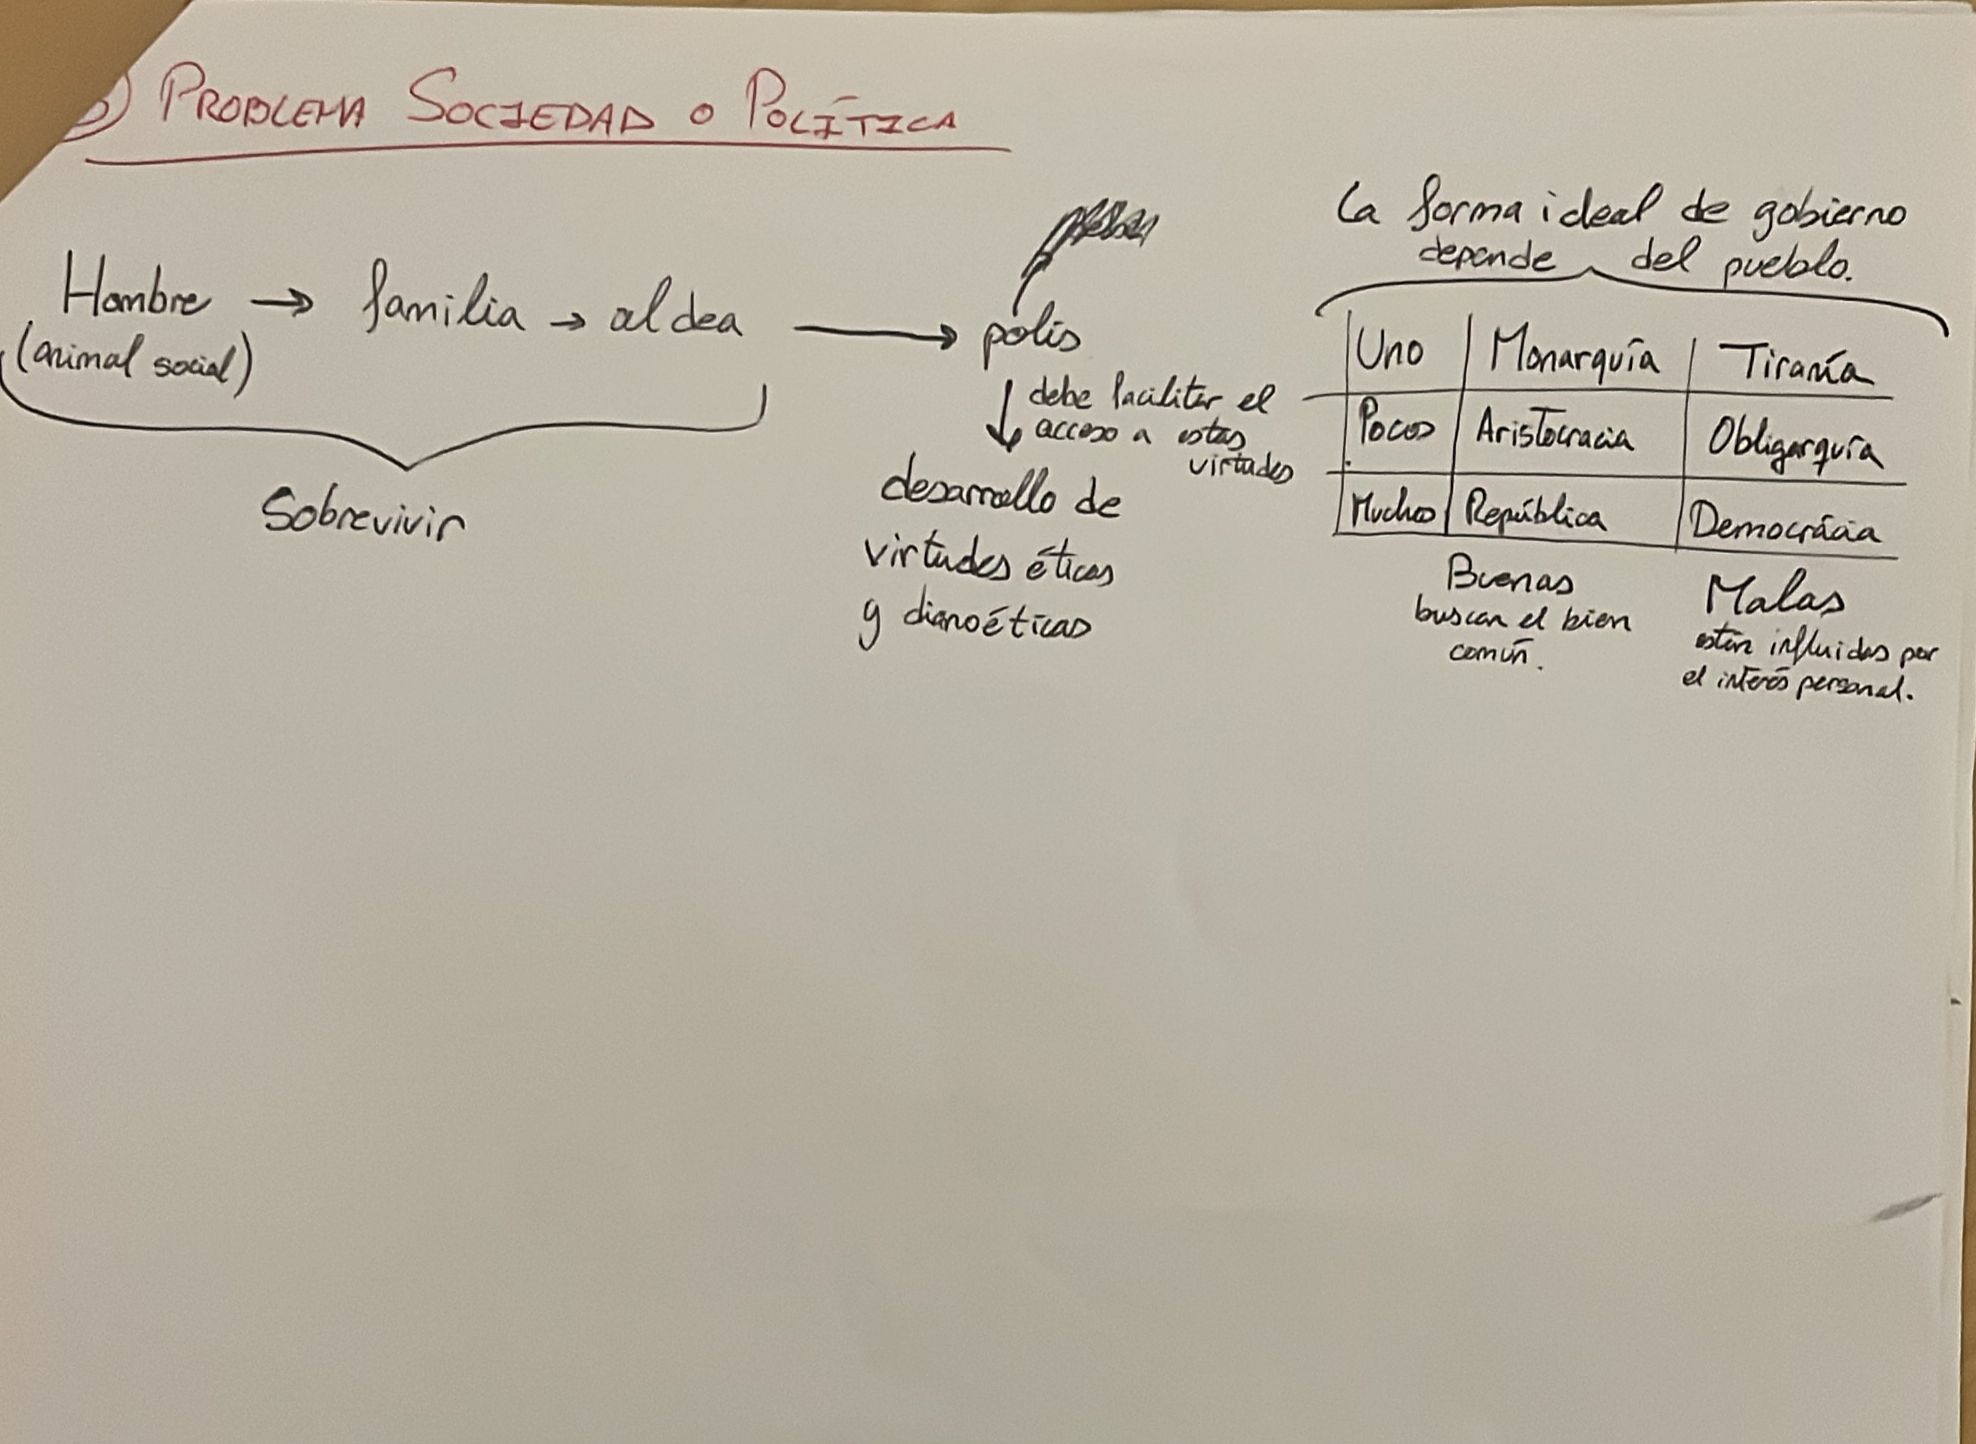 PROBLEMA SOCIEDAD O POLÍTICA
Hombre → familia → aldea → polis
(animal social)
Sobrevivir
debe facilitar el
acceso a estas
virtudes
desarrollo de
virtudes éticas
y dianoéticas
La forma ideal de gobierno
depende del pueblo.
Uno Monarquía Tiranía
Pocos Aristocracia Obligarquía
Muchos República Democrácia
Buenas
buscan el bien
común.
Malas
están influidas por
el interés personal.